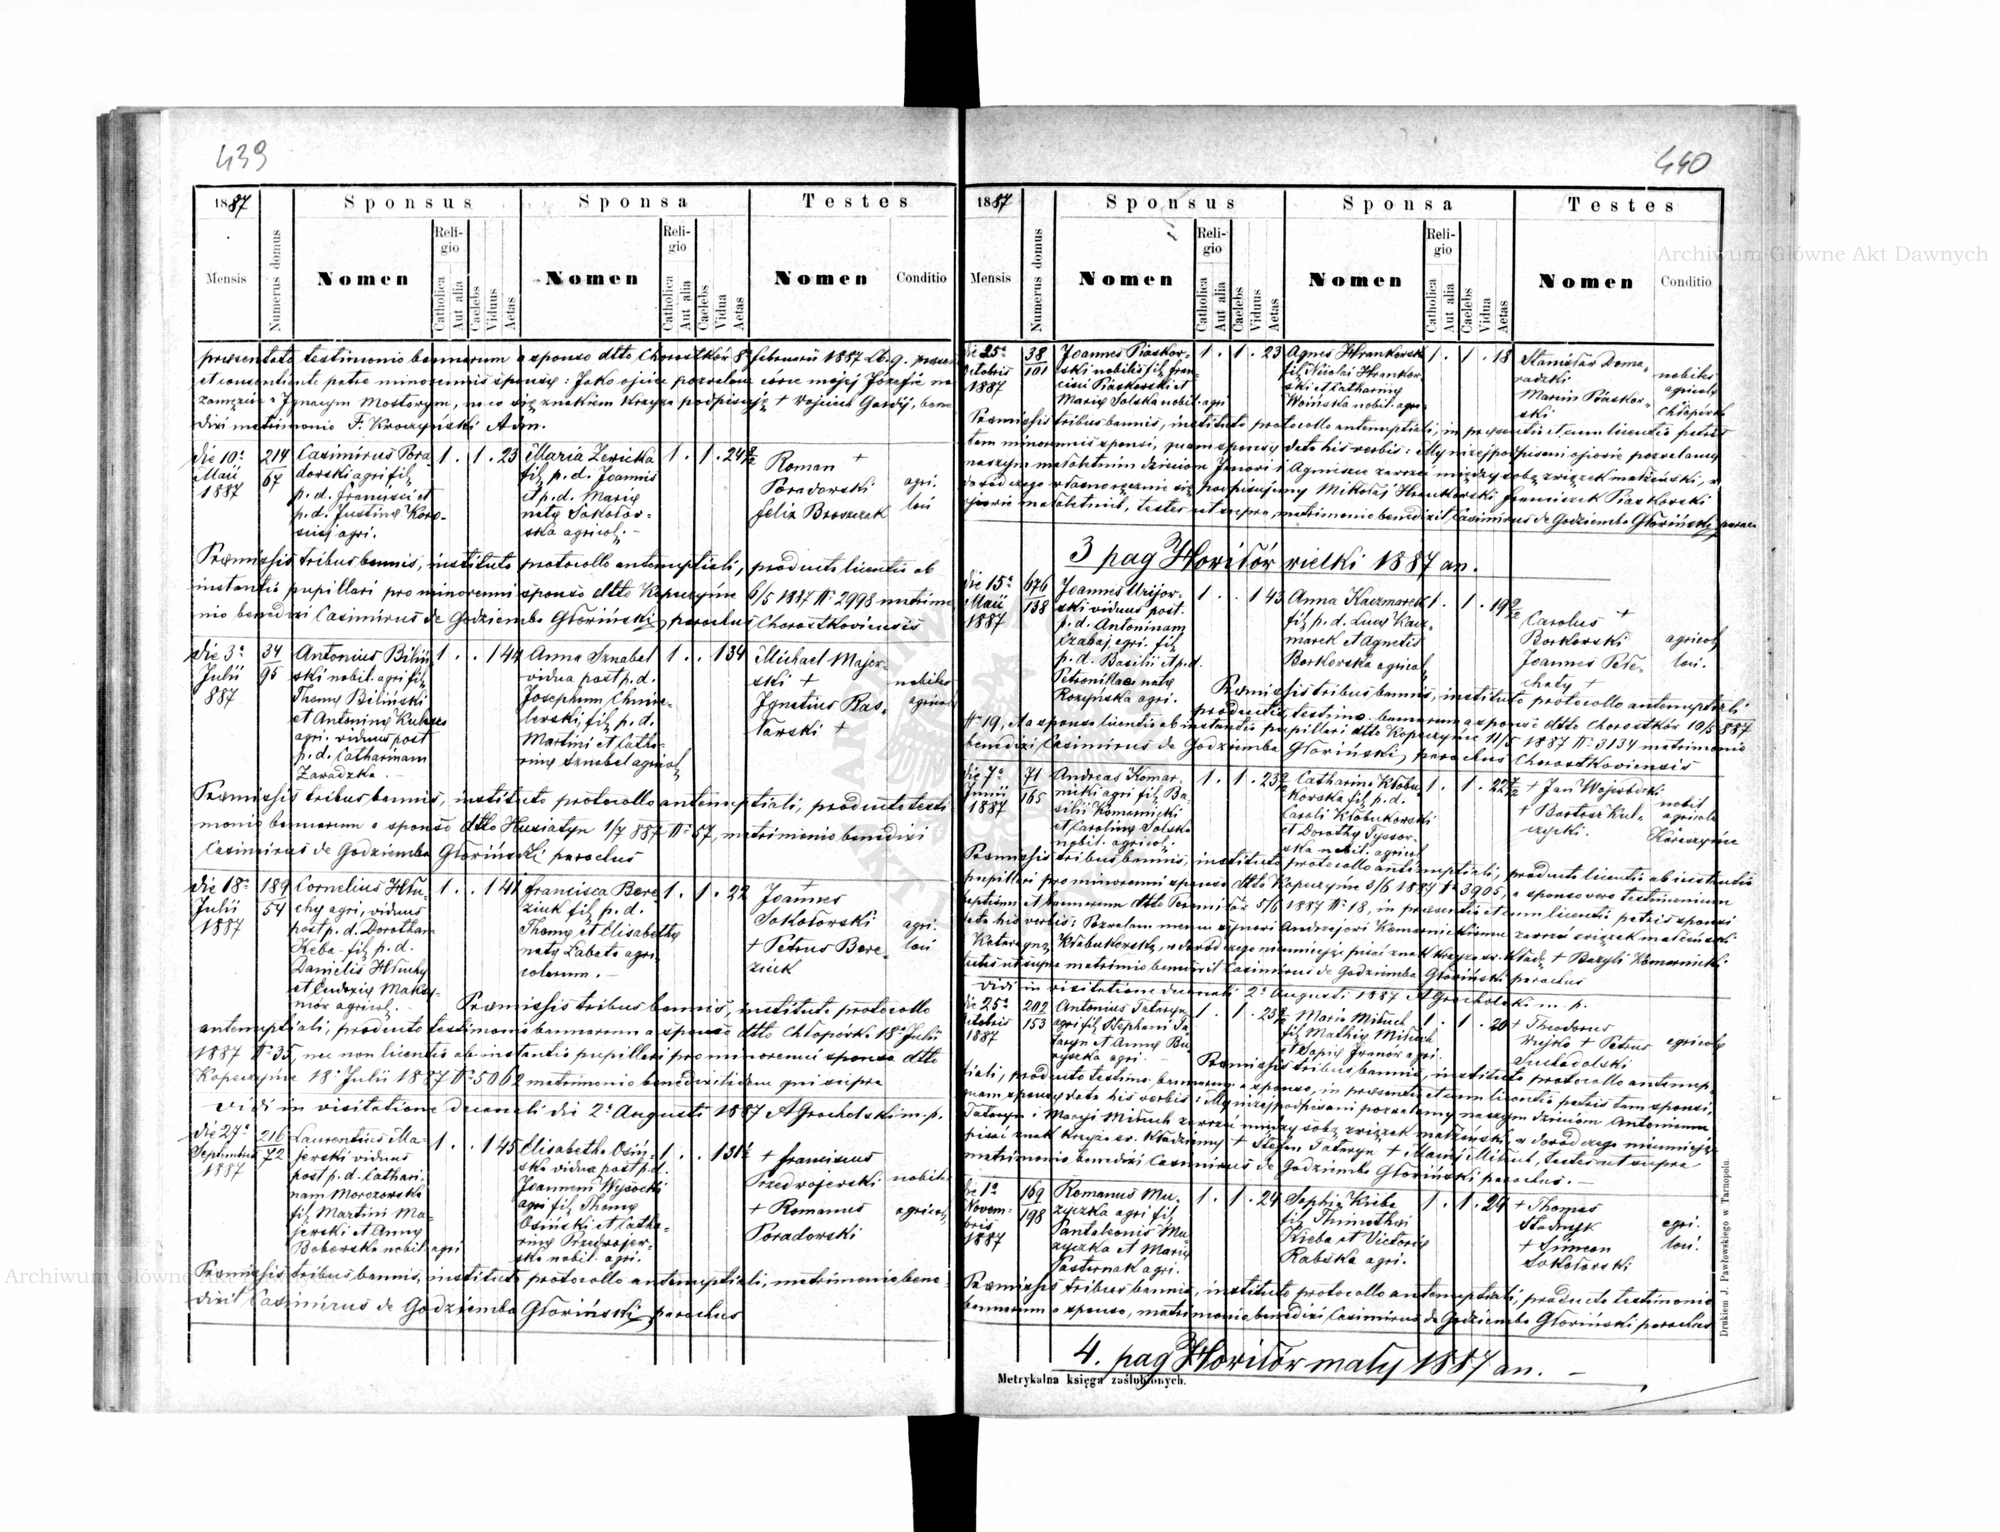 439
1887
Sponsus
Sponsa
Testes
Mensis
Numerus domus
Nomen
Religio
Catholica
Aut alia
Caelebs
Viduus
Aetas
Nomen
Religio
Catholica
Aut alia
Caelebs
Vidua
Aetas
Nomen
Conditio
praesentato testimonio bannorum a sponso dtto Chorostków 8 februarii 1887
et consentiente patre minorennis sponsę: Jako ojciec pozwalam córce mojej Józefie na
zamęzcie z Ignacym Mostowym, na co się znakiem krzyża podpisuję + Wojciech bene
dixi matrimonio F. Kroczyński Adm.
die 10ª
Maii
1887
214
67
Casimirus Pora-
dowski agri fil.
p. d. Francisci et
p. d. Justinę
agri.
1 . 1 . 23
Maria Zewicka
fil. p. d. Joannis
et p. d. Marię
natę Sokołow-
ska agricol. –
1 . 1 . 24
+
Roman
Poradowski
Felix
agri.
Praemissis tribus bannis, instituto protocollo antenuptiali, producta licentia ab
instantia pupillari pro minorenni sponso dtto Kopeczyńce 6/5 1887 Nº 2998 matrimo
nio benedixi Casimirus de Godziemba Głowiński parochus Chorostkoviensis
die 3ª
Julii
887
34
95
Antonius Biliń
ski nobil. agri fil.
Thomę Biliński
et Antoninę
agri. viduus post
p. d. Catharinam
Zawadzka. –
1 . . 1 44
Anna Sznabel
vidua post p. d.
Josephum Chmie-
lewski, fil. p. d.
Martini et Catha-
rinę Sznabel agricol.
1 . . 1 34
Michael Majer-
ski +
Ignatius Ras-
ławski +
nobiles
agricol
Praemissis tribus bannis, instituto protocollo antenuptiali, producto testi
monio bannorum a sponso dtto Husiatyn 1/7 887 Nº 57, matrimonio benedixi
Casimirus de Godziemba Głowiński parochus
die 18ª
Julii
1887
189
54
Cornelius Hłu-
chy agri, viduus
post p. d. Dorotham
Keba fil. p. d.
Danielis Hłuchy
et Eudoxię Maksy-
mów agricol.
1 . . 1 41
Francisca Bere
ziuk fil. p. d.
Thomę et Elisabethę
natę Łabata agri-
colarum. –
1 . 1 . 22
+
Joannes
Sokołowski
+ Petrus Bere-
ziuk
agri-
Praemissis tribus bannis, instituto protocollo
antenuptiali, producto testimonio bannorum a sponso dtto Chłopówka 18ª Julii
1887 Nº 35, nec non licentia ab instantia pupillari pro minorenni sponsa dtto
Kopeczyńce 18ª Julii 1887 Nº 5062 matrimonio benedixit idem qui supra
vidi in visitatione decanali die 2ª Augusti 1887 A Grocholski m. p.
die 27ª
Septembris
1887
216
72
Laurentius Ma-
jerski viduus
post p. d. Cathari-
nam Morozowska
fil. Martini Ma-
jerski et Annę
Boborska nobil. agri
1 . . 1 45
Elisabetha Osiń-
ski vidua post p. d.
Joannem Wysocki
agri fil. Thomę
Osiński et Catha-
rinę Przedrojer-
ska nobil. agri.
1 . . 1 31½
+ Franciscus
Przedrojerski
+ Romanus
Poradowski
nobiles
agricol.
Praemissis tribus bannis, instituto protocollo antenuptiali, matrimonio bene-
dixit Casimirus de Godziemba Głowiński parochus
440
1887
Sponsus
Sponsa
Testes
Mensis
Numerus domus
Nomen
Religio
Catholica
Aut alia
Caelebs
Viduus
Aetas
Nomen
Religio
Catholica
Aut alia
Caelebs
Vidua
Aetas
Nomen
Conditio
die 25ª
Octobris
1887
38
101
Joannes Piaskow-
ski nobilis fil. Fran-
cisci Piaskowski et
Marię Solska nobil. agri
1 . 1 . 23
Agnes Hrankowska
fil. Nicolai Hrankow-
ski et Catharinę
Woińska nobil. agri.
1 . 1 . 18
Stanisław Doma-
radzki
Marcin Piaskow-
ski
nobiles
agricolę
Chłopówka
Praemissis tribus bannis, instituto protocollo antenuptiali, in praesentia et cum licentia patris
tam minorennis sponsi, quam sponsę data his verbis: My niżej podpisani ojcowie pozwalamy
naszym małoletnim dzieciom Janowi i Agnieszce zawrzeć między sobą związek małżeński, w
dowód czego własnoręcznie się podpisujemy Mikołaj Hrankowski Franciszek Piaskowski
ojcowie małoletnich, testes ut supra, matrimonio benedixit Casimirus de Godziemba Głowiński paroch
3 pag Howiłów wielki 1887 an.
die 15ª
Maii
1887
676
138
Joannes
ski viduus post.
p. d. Antoninam
Czabaj agri. fil.
p. d. Basilii et p. d.
Petronillae natę
Rozyńska agri.
1 . . 1 43
Anna Kaczmarek
fil. p. d. Lucę Kacz-
marek et Agnetis
Borkowska agricol.
1 . 1 . 19
+
Carolus
Borkowski
Joannes Pele-
chaty +
agricol
Praemissis tribus bannis, instituto protocollo antenuptiali
producto testimo. bannorum a sponso dtto Chorostków 10/5 887
Nº 19, et a sponsa licentia ab instantia pupillari dtto Kopeczyńce 11/5 1887 Nº 3134 matrimonio
benedixi Casimirus de Godziemba Głowiński, parochus Chorostkoviensis
die 7ª
Junii
1887
71
165
Andreas Komar-
nicki agri fil. Ba-
silii Komarnicki
et Carolinę Solska
nobil. agricol.
1 . 1 . 23
Catharina Kłobu-
kowska fil. p. d.
Caroli Kłobukowski
et Dorothę Tyssow-
ska nobil. agricol
1 . 1 . 22
+ Jan
+ Bartosz Kul-
czycki.
nobil
agricolę
Praemissis tribus bannis, instituto protocollo antenuptiali, producta licentia ab instantia
pupillari pro minorenni sponsa dtto Kopeczyńce 3/6 1887 Nº 3905, a sponso vero testimonium
baptismi et bannorum dtto 5/6 1887 Nº 18, in praesentia et cum licentia patris sponsi
data his verbis: Pozwalam memu synowi Andrzejowi Komarnickiemu zawrzeć związek małżeński
z Katarzyną Kłobukowską, w dowód czego nieumiejąc pisać znak krzyża św. kładę + Bazyli Komarnicki
testes ut supra matrimonio benedixit Casimirus de Godziemba Głowiński parochus
vidi in visitatione decanali 2ª Augusti 1887 A Grocholski m. p.
die 25ª
Octobris
1887
202
153
Antonius Tataryn
agri fil. Stephani Ta-
taryn et Annę Bu-
ryszka agri.
1 . 1 . 23
Maria Mituch
fil. Mathię Mituch
et agri.
1 . 1 . 20
+ Theodorus
+ Petrus
Suchodolski
agricolę
Praemissis tribus bannis, instituto protocollo antenup-
tiali, producto testimo. bannorum a sponso, in praesentia et cum licentia patris tam sponsi,
quam sponsę data his verbis: My niżej podpisani pozwalamy naszym dzieciom Antoniemu
Tataryn i Maryi Mituch zawrzeć między sobą związek małżeński, w dowód czego nieumiejąc
pisać znak krzyża św. kładziemy + Stefan Tataryn + Maciej Mituch, testes ut supra
matrimonio benedixi Casimirus de Godziemba Głowiński parochus. –
die 1ª
Novem-
bris
1887
169
198
Romanus Mu-
zyczka agri fil.
Pantaleonis Mu-
zyczka et Marię
Pasternak agri.
1 . 1 . 24
Sophia Kieba
fil. Thimothei
Kieba et Victorię
Rabska agri.
1 . 1 . 24
+ Thomas
Stadnyk
+ Simeon
Sokołowski
agri-
Praemissis tribus bannis, instituto protocollo antenuptiali, producto testimonio
bannorum a sponso, matrimonio benedixi Casimirus de Godziemba Głowiński parochus
4. pag Howiłów mały 1887 an. –
Metrykalna księga zaślubionych.
Drukiem J. Pawłowskiego w Tarnopolu.
Archiwum Główne Akt Dawnych
Archiwum Główne Akt Dawnych